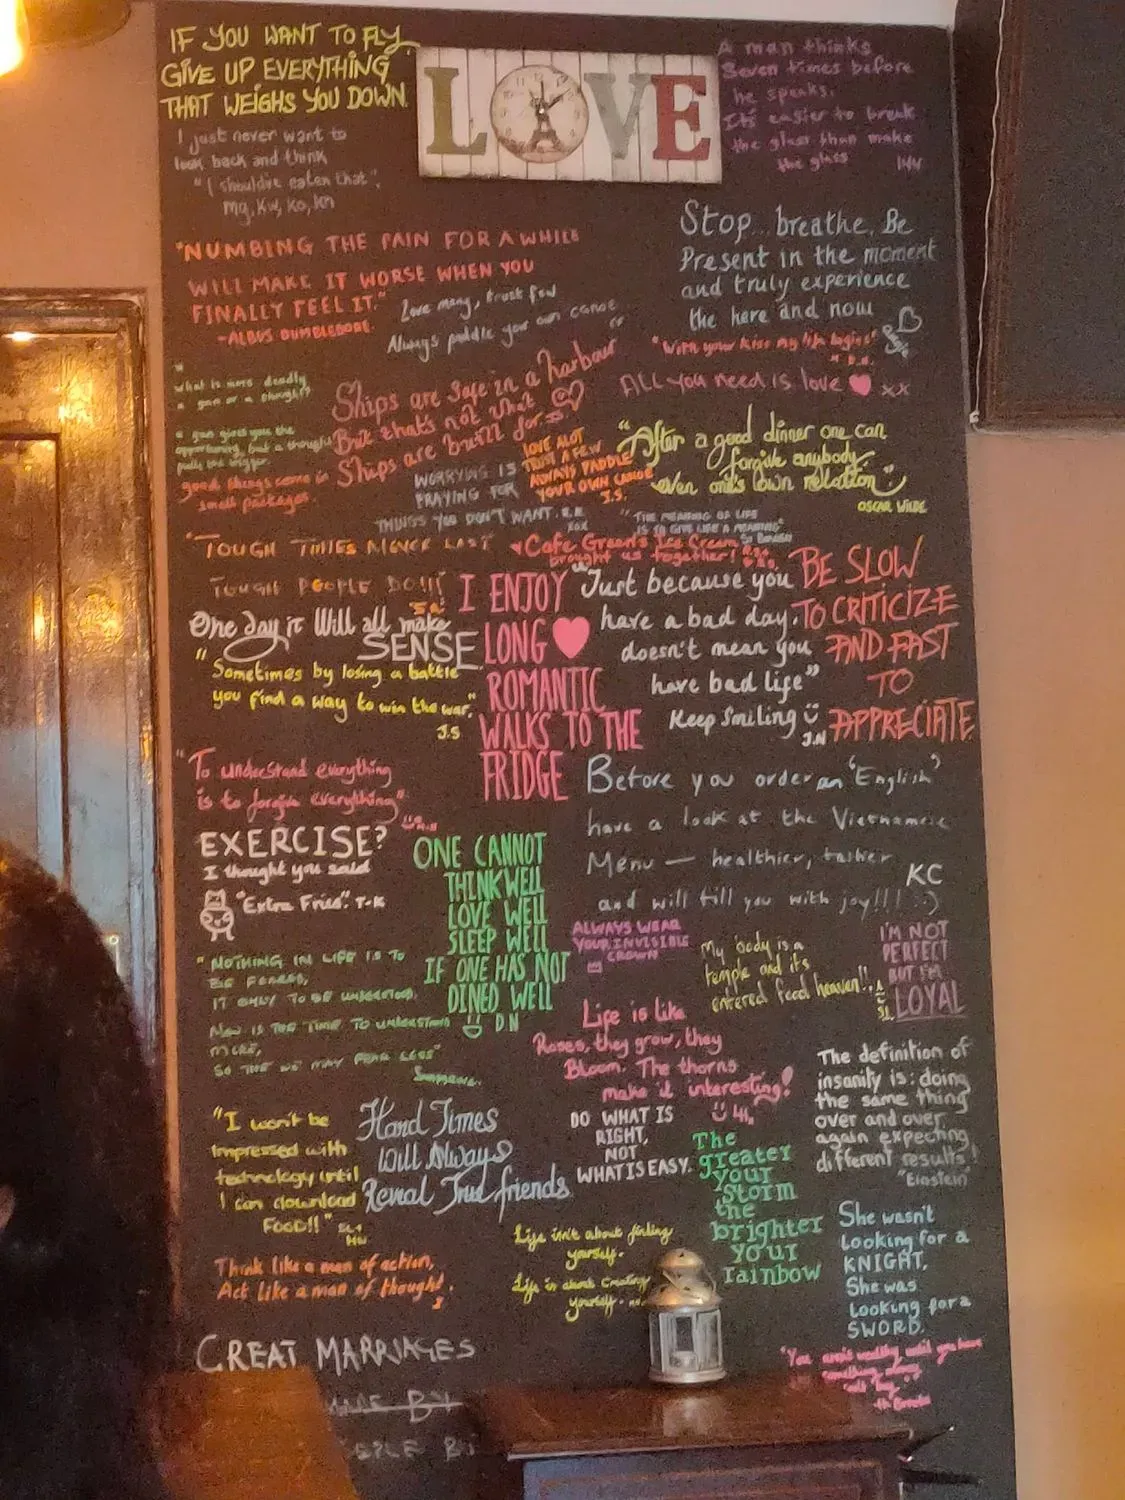 IF YOU WANT TO FLY
GIVE UP EVERYTHING
THAT WEIGHS YOU DOWN.
LOVE
A man thinks
Seven times before
he speaks.
It's easier to break
the glass than make
the glass
I just never want to
look back and think
"I should've eaten that".
MG, KW, KO, KM
"NUMBING THE PAIN FOR A WHILE
WILL MAKE IT WORSE WHEN YOU
FINALLY FEEL IT."
-ALBUS DUMBLEDORE.
Love many, trust few
Always paddle your own canoe
Stop... breathe. Be
Present in the moment
and truly experience
the here and now
"With your kiss my life begins"
ALL YOU NEED IS LOVE ♥ xx
What is more deadly
a gun or a thought?
a gun gives you the
opportunity, but a thought
pulls the trigger
Ships are safe in a harbour
But that's not what
Ships are built for.
good things come in
small packages.
WORRYING IS
PRAYING FOR
THINGS YOU DON'T WANT.
LOVE ALOT
TRUST A FEW
ALWAYS PADDLE
YOUR OWN CANOE
J.S.
"After a good dinner one can
forgive anybody
even one's own relation"
OSCAR WILDE
"THE MEANING OF LIFE
IS TO GIVE LIFE A MEANING"
"TOUGH TIMES NEVER LAST
TOUGH PEOPLE DO!!!
♥Cafe Green's Ice Cream
brought us together!
One day it Will all make
SENSE
I ENJOY
LONG ♥
ROMANTIC
WALKS TO THE
FRIDGE
"Just because you
have a bad day.
doesn't mean you
have bad life"
Keep Smiling
J.N
BE SLOW
TO CRITICIZE
AND FAST
TO
APPRECIATE
"Sometimes by losing a battle
you find a way to win the war."
J.S
"To understand everything
is to forgive everything"
Before you order an "English"
have a look at the Vietnamese
Menu — healthier, tastier
and will fill you with joy!!! :)
KC
EXERCISE?
I thought you said
"Extra Fries". T-K
ONE CANNOT
THINK WELL
LOVE WELL
SLEEP WELL
IF ONE HAS NOT
DINED WELL
DN
ALWAYS WEAR
YOUR INVISIBLE
CROWN
My body is a
temple and it's
entered food heaven!!
I'M NOT
PERFECT
BUT I'M
LOYAL
"NOTHING IN LIFE IS TO
BE FEARED,
IT ONLY TO BE UNDERSTOOD.
NOW IS THE TIME TO UNDERSTAND
MORE,
SO THAT WE MAY FEAR LESS"
Someone.
Life is like
Roses, they grow, they
Bloom. The thorns
make it interesting!
The definition of
insanity is: doing
the same thing
over and over,
again expecting
different results!
"Einstein"
"I won't be
impressed with
technology until
I can download
FOOD!!"
Hard Times
Will Always
Reveal True friends
DO WHAT IS
RIGHT,
NOT
WHAT IS EASY.
The
greater
your
storm
the
brighter
your
rainbow
She wasn't
looking for a
KNIGHT,
She was
looking for a
SWORD.
Life isn't about finding
yourself.
Life is about creating
yourself.
Think like a man of action,
Act like a man of thought.
GREAT MARRIAGES
"You aren't wealthy until you have
something